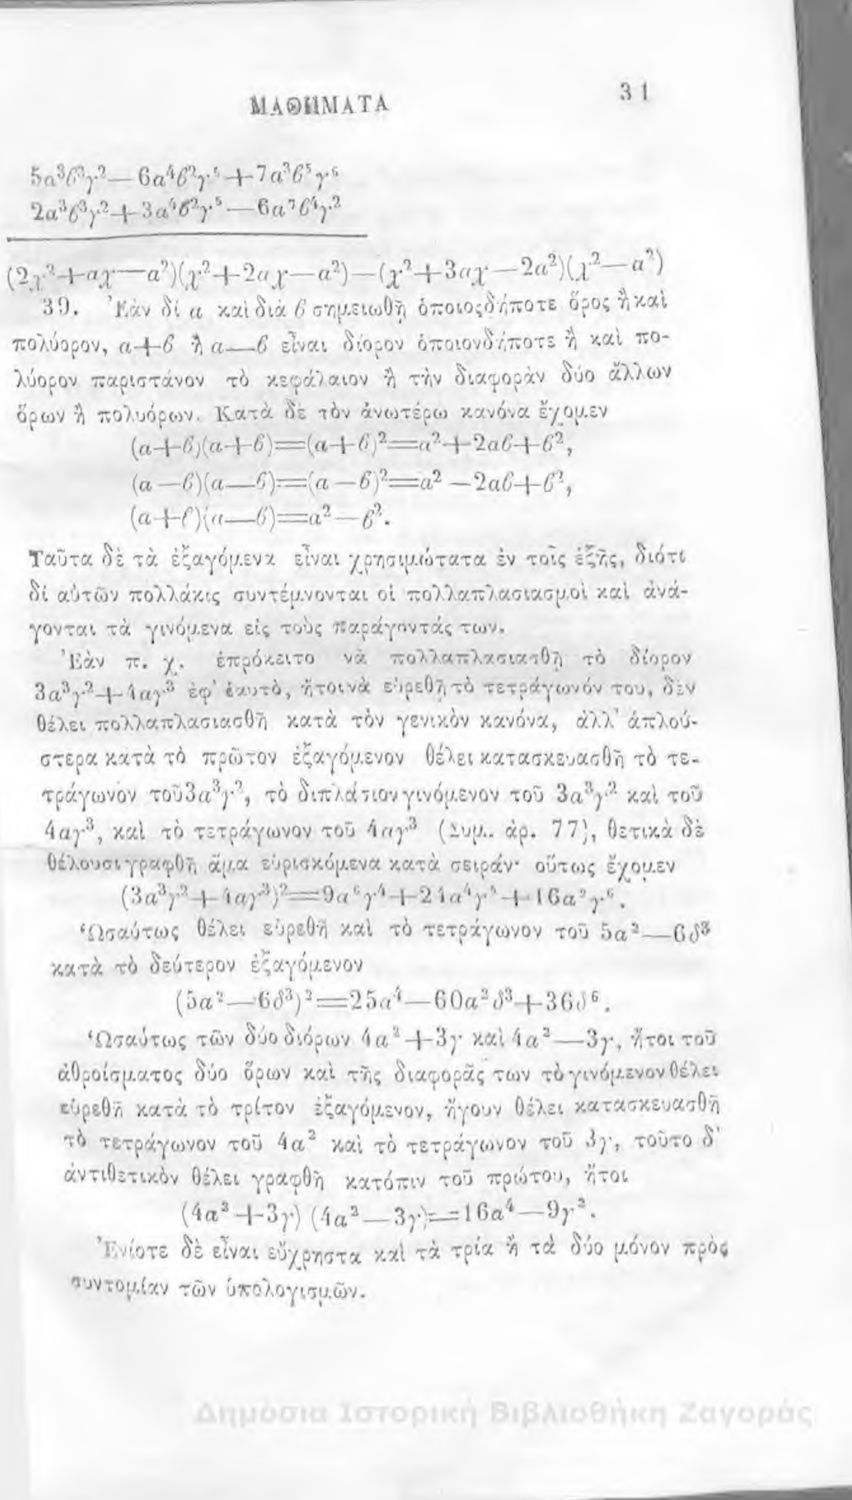 ΜΑΘΗΜΑΤΑ
31
5α³β³γ²—6α⁴β²γ⁵+7α³β⁵γ⁶
2α³β³γ²+3α⁴β²γ⁵—6α⁷β⁴γ²
(2χ²+αχ—α²)(χ²+2αχ—α²)—(χ²+3αχ—2α²)(χ²—α²)
39. Ἐὰν δί α καὶ διὰ β σημειωθῇ ὁποιοςδήποτε ὅρος ἢ καὶ
πολύορον, α+β ἢ α—β εἶναι δίορον ὁποιονδήποτε ἢ καὶ πο-
λύορον παριστάνον τὸ κεφάλαιον ἢ τὴν διαφορὰν δύο ἄλλων
ὅρων ἢ πολυόρων. Κατὰ δὲ τὸν ἀνωτέρω κανόνα ἔχομεν
(α+β)(α+β)=(α+β)²=α²+2αβ+β²,
(α—β)(α—β)=(α—β)²=α²—2αβ+β²,
(α+β)(α—β)=α²—β².
Ταῦτα δὲ τὰ ἐξαγόμενα εἶναι χρησιμώτατα ἐν τοῖς ἑξῆς, διότι
δί αὐτῶν πολλάκις συντέμνονται οἱ πολλαπλασιασμοὶ καὶ ἀνά-
γονται τὰ γινόμενα εἰς τοὺς παράγοντάς των.
Ἐὰν π. χ. ἐπρόκειτο νὰ πολλαπλασιασθῇ τὸ δίορον
3α³γ²+4αγ³ ἐφ' ἑαυτὸ, ἤτοι νὰ εὑρεθῇ τὸ τετράγωνόν του, δὲν
θέλει πολλαπλασιασθῆ κατὰ τὸν γενικὸν κανόνα, ἀλλ' ἁπλού-
στερα κατὰ τὸ πρῶτον ἐξαγόμενον θέλει κατασκευασθῆ τὸ τε-
τράγωνον τοῦ 3α³γ², τὸ διπλάσιον γινόμενον τοῦ 3α³γ² καὶ τοῦ
4αγ³, καὶ τὸ τετράγωνον τοῦ 4αγ³ (Συμ. ἀρ. 77), θετικὰ δὲ
θέλουσι γραφθῆ ἅμα εὑρισκόμενα κατὰ σειράν· οὕτως ἔχομεν
(3α³γ²+4αγ³)²=9α⁶γ⁴+24α⁴γ⁵+16α²γ⁶.
Ὡσαύτως θέλει εὑρεθῆ καὶ τὸ τετράγωνον τοῦ 5α²—6δ³
κατὰ τὸ δεύτερον ἐξαγόμενον
(5α²—6δ³)²=25α⁴—60α²δ³+36δ⁶.
Ὡσαύτως τῶν δύο διόρων 4α²+3γ καὶ 4α²—3γ, ἤτοι τοῦ
ἀθροίσματος δύο ὅρων καὶ τῆς διαφορᾶς των τὸ γινόμενον θέλει
εὑρεθῆ κατὰ τὸ τρίτον ἐξαγόμενον, ἤγουν θέλει κατασκευασθῆ
τὸ τετράγωνον τοῦ 4α² καὶ τὸ τετράγωνον τοῦ 3γ, τοῦτο δ'
ἀντιθετικὸν θέλει γραφθῆ κατόπιν τοῦ πρώτου, ἤτοι
(4α²+3γ) (4α²—3γ)=16α⁴—9γ².
Ἐνίοτε δὲ εἶναι εὔχρηστα καὶ τὰ τρία ἢ τὰ δύο μόνον πρὸς
συντομίαν τῶν ὑπολογισμῶν.
Δημόσια Ιστορική Βιβλιοθήκη Ζαγοράς